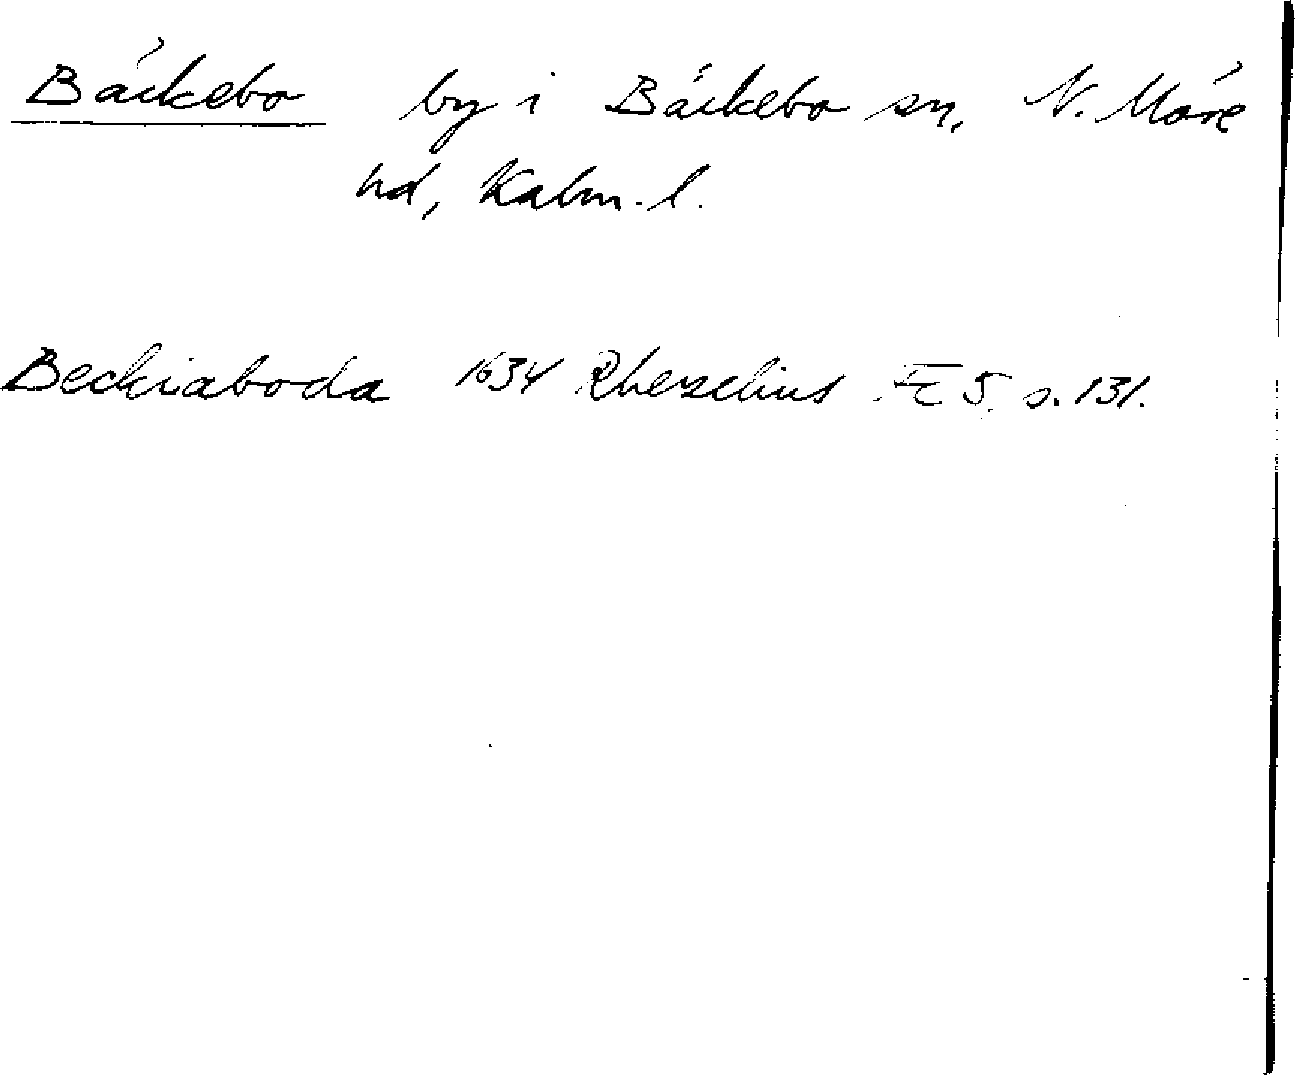 Bäckebo by i Bäckebo sn, N. Möre
hd, Kalm. l.
Beckiaboda 1634 Rhezelius Fc 5, s. 131.